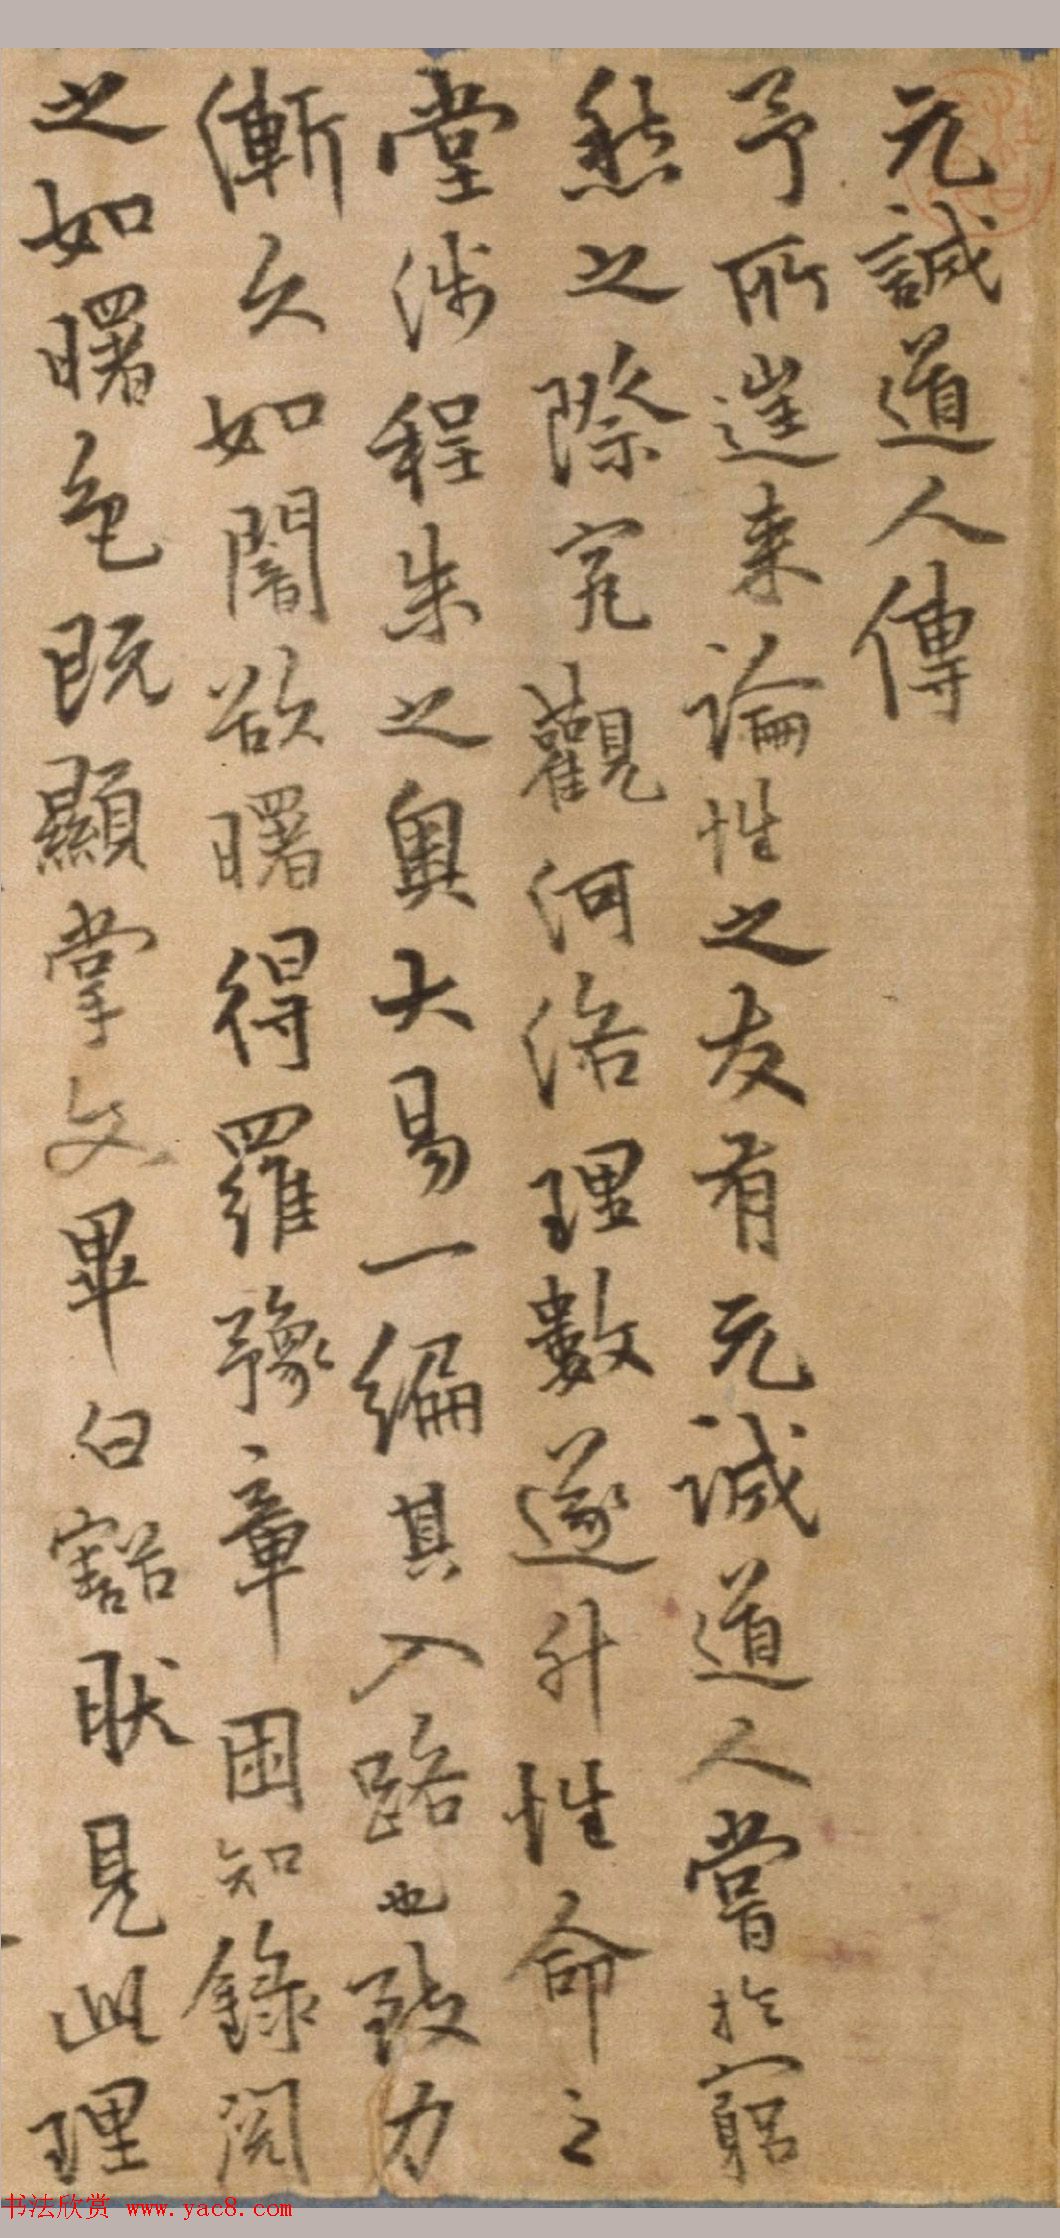 元誠道人傳
予所遘来論性之友有元誠道人嘗於窮
愁之際完觀河洛理數遂升性命之
堂涉程朱之奧大易一編其入路也致力
漸久如闇欲曙得羅豫章困知錄閱
之如曙色既顯掌文畢白豁肰見此理
书法欣赏 www.yac8.com